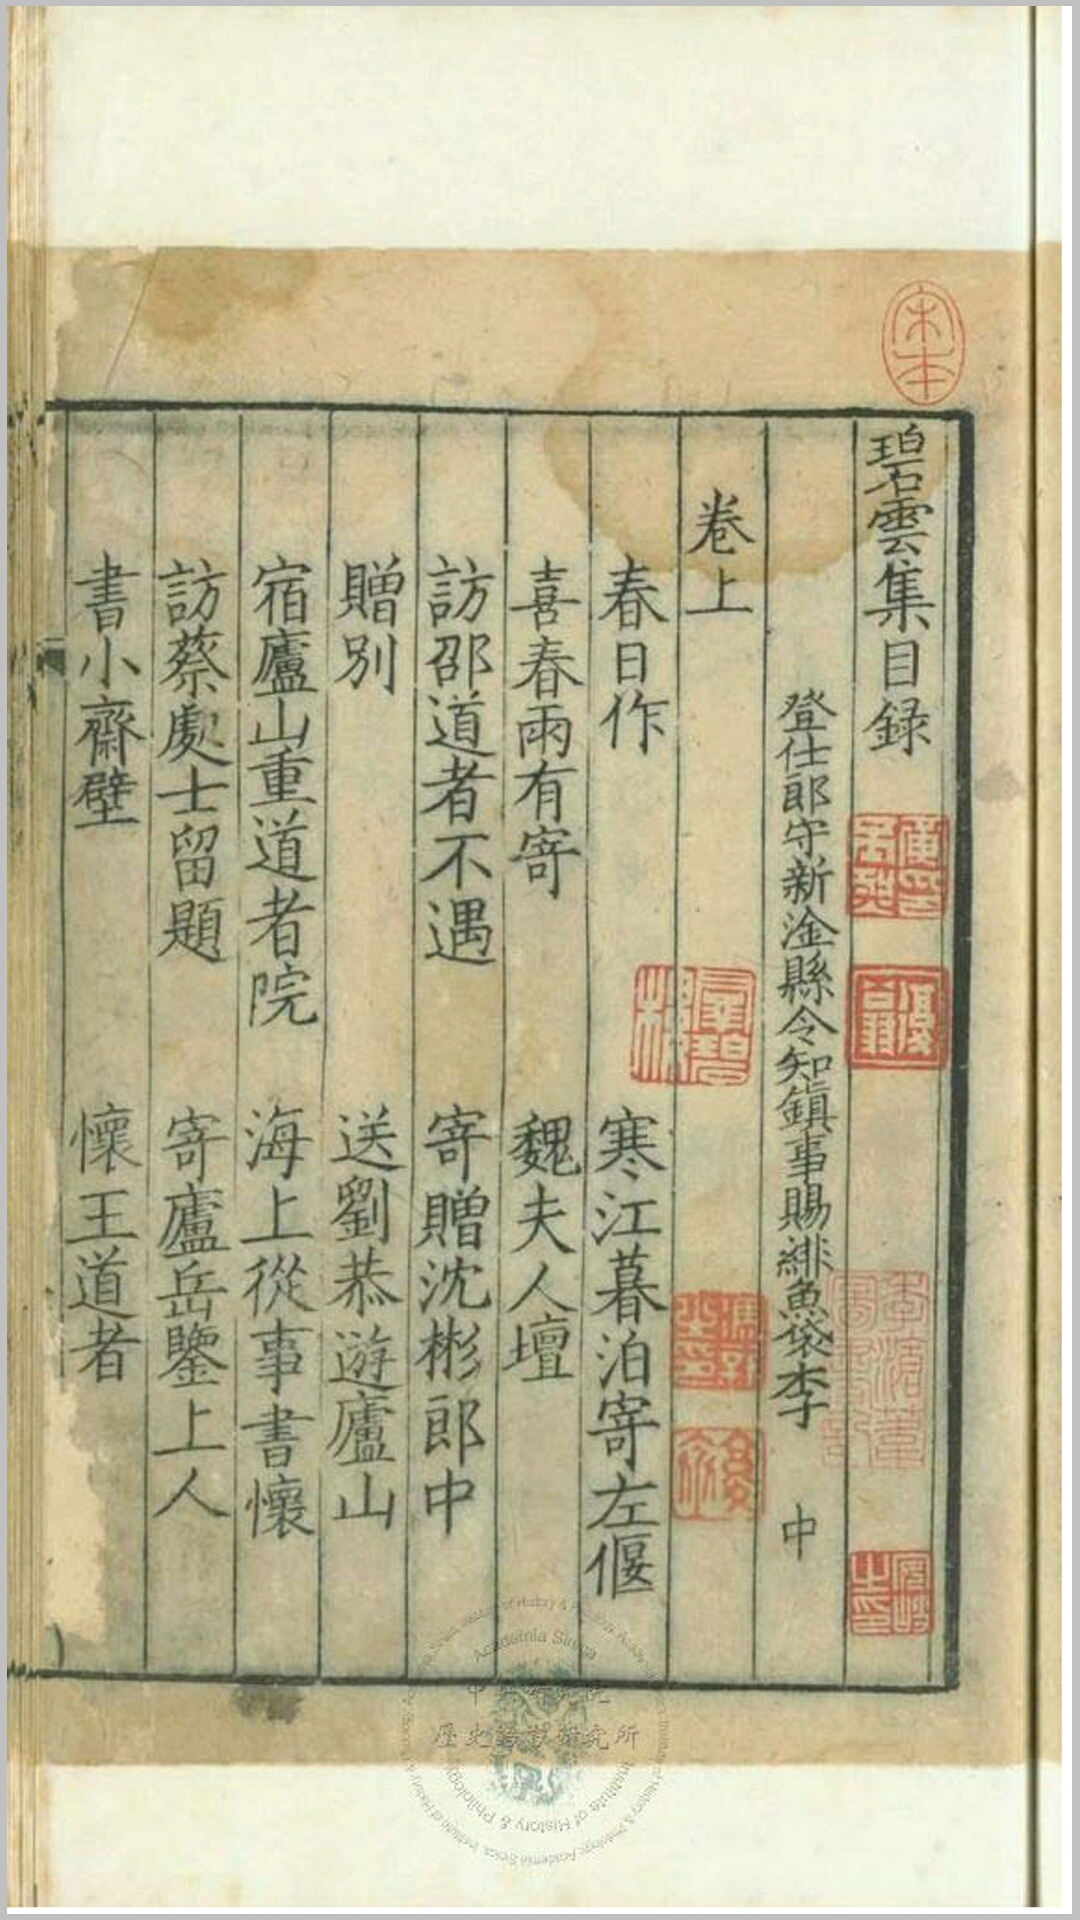 碧雲集目録
登仕郎守新淦縣令知鎮事賜緋魚袋李 中
卷上
春日作 寒江暮泊寄左偃
喜春雨有寄 魏夫人壇
訪邵道者不遇 寄贈沈彬郎中
贈別 送劉恭遊廬山
宿廬山重道者院 海上從事書懷
訪蔡處士留題 寄廬岳鑒上人
書小齋壁 懷王道者
宋本
中央研究院
歷史語言研究所
Academia Sinica
Institute of History & Philology